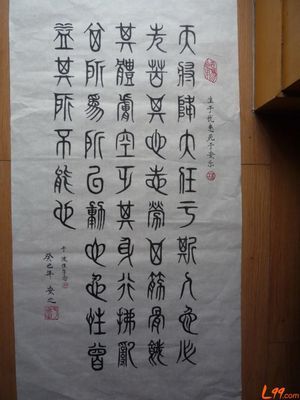 天將降大任于斯人也必
先苦其心志勞其筋骨餓
其體膚空乏其身行拂亂
其所為所以動心忍性曾
益其所不能也
生于忧患死于安乐
癸巳年 安之
L99.com